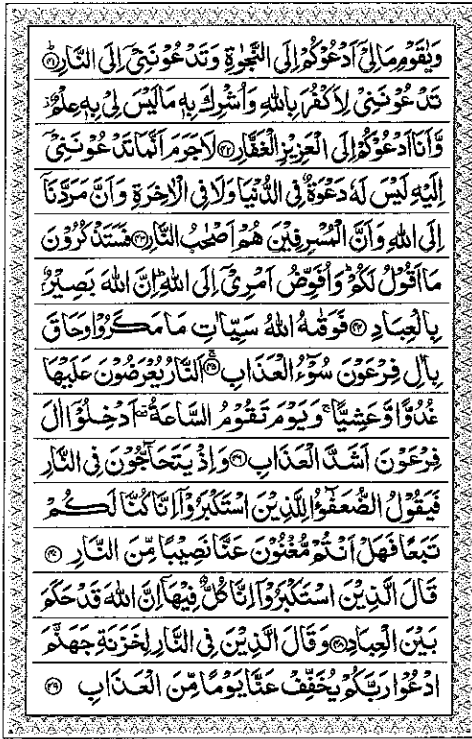 وَيٰقَوْمِ مَا لِيْٓ اَدْعُوْكُمْ اِلَى النَّجٰوةِ وَتَدْعُوْنَنِيْٓ اِلَى النَّارِ ﴿۴۱﴾
تَدْعُوْنَنِيْ لِاَكْفُرَ بِاللّٰهِ وَاُشْرِكَ بِهٖ مَا لَيْسَ لِيْ بِهٖ عِلْمٌ
وَّاَنَا اَدْعُوْكُمْ اِلَى الْعَزِيْزِ الْغَفَّارِ ﴿۴۲﴾ لَا جَرَمَ اَنَّمَا تَدْعُوْنَنِيْٓ
اِلَيْهِ لَيْسَ لَهٗ دَعْوَةٌ فِي الدُّنْيَا وَلَا فِي الْاٰخِرَةِ وَاَنَّ مَرَدَّنَآ
اِلَى اللّٰهِ وَاَنَّ الْمُسْرِفِيْنَ هُمْ اَصْحٰبُ النَّارِ ﴿۴۳﴾ فَسَتَذْكُرُوْنَ
مَآ اَقُوْلُ لَكُمْ وَاُفَوِّضُ اَمْرِيْٓ اِلَى اللّٰهِ اِنَّ اللّٰهَ بَصِيْرٌۢ
بِالْعِبَادِ ﴿۴۴﴾ فَوَقٰىهُ اللّٰهُ سَيِّاٰتِ مَا مَكَرُوْا وَحَاقَ
بِاٰلِ فِرْعَوْنَ سُوْٓءُ الْعَذَابِ ﴿۴۵﴾ اَلنَّارُ يُعْرَضُوْنَ عَلَيْهَا
غُدُوًّا وَّعَشِيًّا وَيَوْمَ تَقُوْمُ السَّاعَةُ اَدْخِلُوْٓا اٰلَ
فِرْعَوْنَ اَشَدَّ الْعَذَابِ ﴿۴۶﴾ وَاِذْ يَتَحَآجُّوْنَ فِي النَّارِ
فَيَقُوْلُ الضُّعَفٰٓؤُا لِلَّذِيْنَ اسْتَكْبَرُوْٓا اِنَّا كُنَّا لَكُمْ
تَبَعًا فَهَلْ اَنْتُمْ مُّغْنُوْنَ عَنَّا نَصِيْبًا مِّنَ النَّارِ ﴿۴۷﴾
قَالَ الَّذِيْنَ اسْتَكْبَرُوْٓا اِنَّا كُلٌّ فِيْهَآ اِنَّ اللّٰهَ قَدْ حَكَمَ
بَيْنَ الْعِبَادِ ﴿۴۸﴾ وَقَالَ الَّذِيْنَ فِي النَّارِ لِخَزَنَةِ جَهَنَّمَ
ادْعُوْا رَبَّكُمْ يُخَفِّفْ عَنَّا يَوْمًا مِّنَ الْعَذَابِ ﴿۴۹﴾